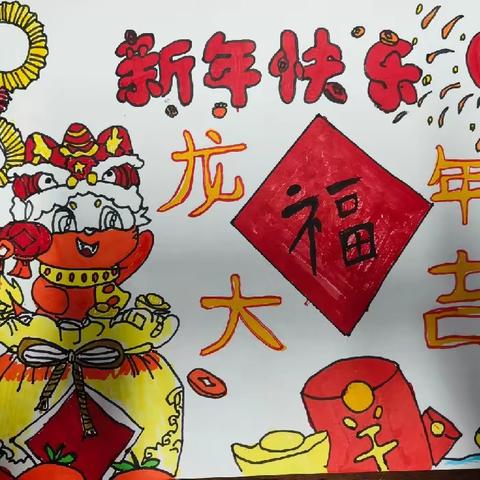 新年快乐
龙年
福
大吉